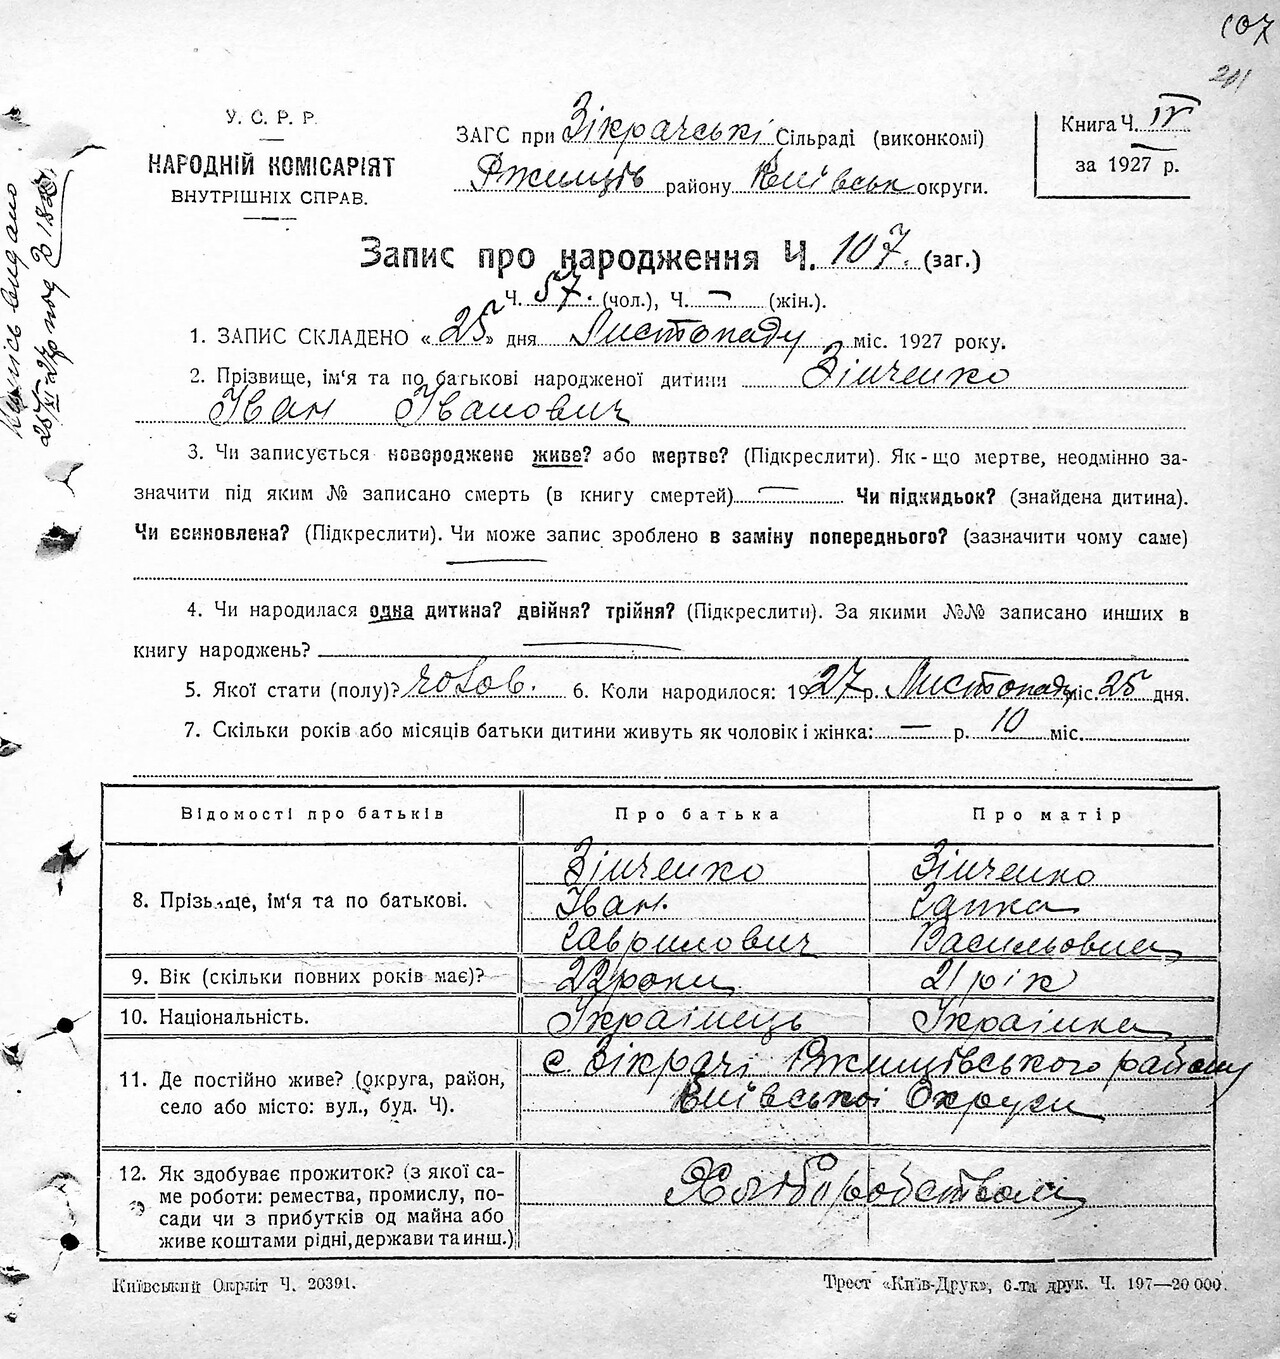 107
201
У. С. Р. Р.
НАРОДНІЙ КОМІСАРІЯТ
ВНУТРІШНІХ СПРАВ.
ЗАГС при Зікрачські Сільраді (виконкомі)
Ржищів району Київськ округи.
Книга Ч. IV
за 1927 р.
Запис про народження Ч. 107. (заг.)
Ч. 57. (чол.), Ч. — (жін.).
1. ЗАПИС СКЛАДЕНО «25» дня Листопаду міс. 1927 року.
2. Прізвище, ім'я та по батькові народженої дитини Зінченко
Іван Іванович
3. Чи записується новороджене живе? або мертве? (Підкреслити). Як-що мертве, неодмінно за-
значити під яким № записано смерть (в книгу смертей) — Чи підкидьок? (знайдена дитина).
Чи всиновлена? (Підкреслити). Чи може запис зроблено в заміну попереднього? (зазначити чому саме)
4. Чи народилася одна дитина? двійня? трійня? (Підкреслити). За якими №№ записано инших в
книгу народжень? —
5. Якої стати (полу)? чолов. 6. Коли народилося: 1927 р. Листопаду міс. 25 дня.
7. Скільки років або місяців батьки дитини живуть як чоловік і жінка: — р. 10 міс.
Відомості про батьків Про батька Про матір
8. Прізвище, ім'я та по батькові.
Зінченко Зінченко
Іван. Гапка
Гаврилович Васильовна
9. Вік (скільки повних років має)? 22 роки 21 рік
10. Національність. Українець Українка
11. Де постійно живе? (округа, район,
село або місто: вул., буд. Ч).
с. Зікрачі Ржищівського району
Київської Округи
12. Як здобуває прожиток? (з якої са-
ме роботи: ремества, промислу, по-
сади чи з прибутків од майна або
живе коштами рідні, держави та инш.)
Хліборобством
Київський Окрліт Ч. 20391.
Трест «Київ-Друк», 6-та друк. Ч. 197—20 000.
видано